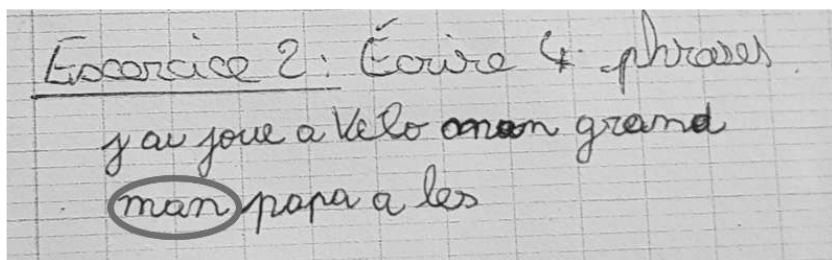 Exercice 2: Écrire 4 phrases.
j ai joue a Velo man grand
man papa a les